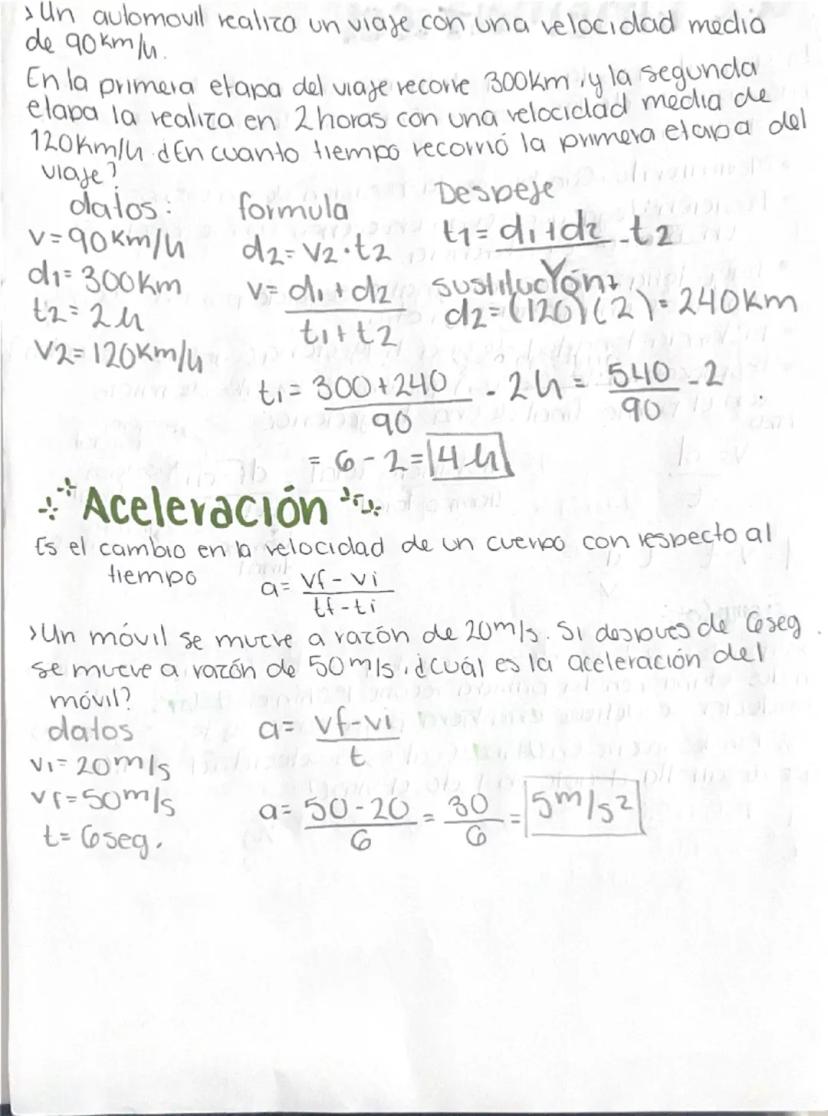 >Un automovil realiza un viaje con una velocidad media
de 90km/h.
En la primera etapa del viaje recorre 300km, y la segunda
etapa la realiza en 2 horas con una velocidad media de
120km/h ¿En cuanto tiempo recorrió la primera etapa del
viaje?
datos: formula Despeje
v=90km/h d2=v2·t2 t1=d1+d2 - t2
d1=300km v=d1+d2/t1+t2 sustitucYón+
t2=2h d2=(120)(2)=240km
v2=120km/h
t1=300+240/90 - 2h = 540/90 - 2
= 6-2=4h
Aceleración
Es el cambio en la velocidad de un cuerpo con respecto al
tiempo a=vf-vi/tf-ti
>Un móvil se mueve a razón de 20m/s. Si despues de 6seg.
se mueve a razón de 50m/s, ¿cuál es la aceleración del
móvil?
datos a=vf-vi/t
vi=20m/s
vf=50m/s a=50-20/6=30/6=5m/s2
t=6seg.